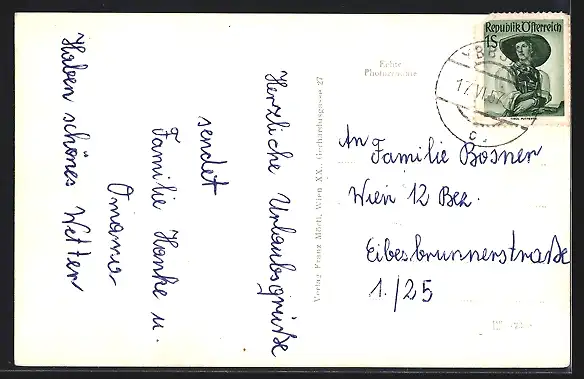 Herzliche Urlaubsgrüße
sendet
Familie Hanke u.
Omama
Haben schönes Wetter
Verlag Franz Mörtl, Wien XX., Gerhardusgasse 27
Echte
Photographie
Republik Österreich
1S
17.VI.57
C
An Familie Bosner
Wien 12 Bez.
Eibesbrunnerstraße
1./25